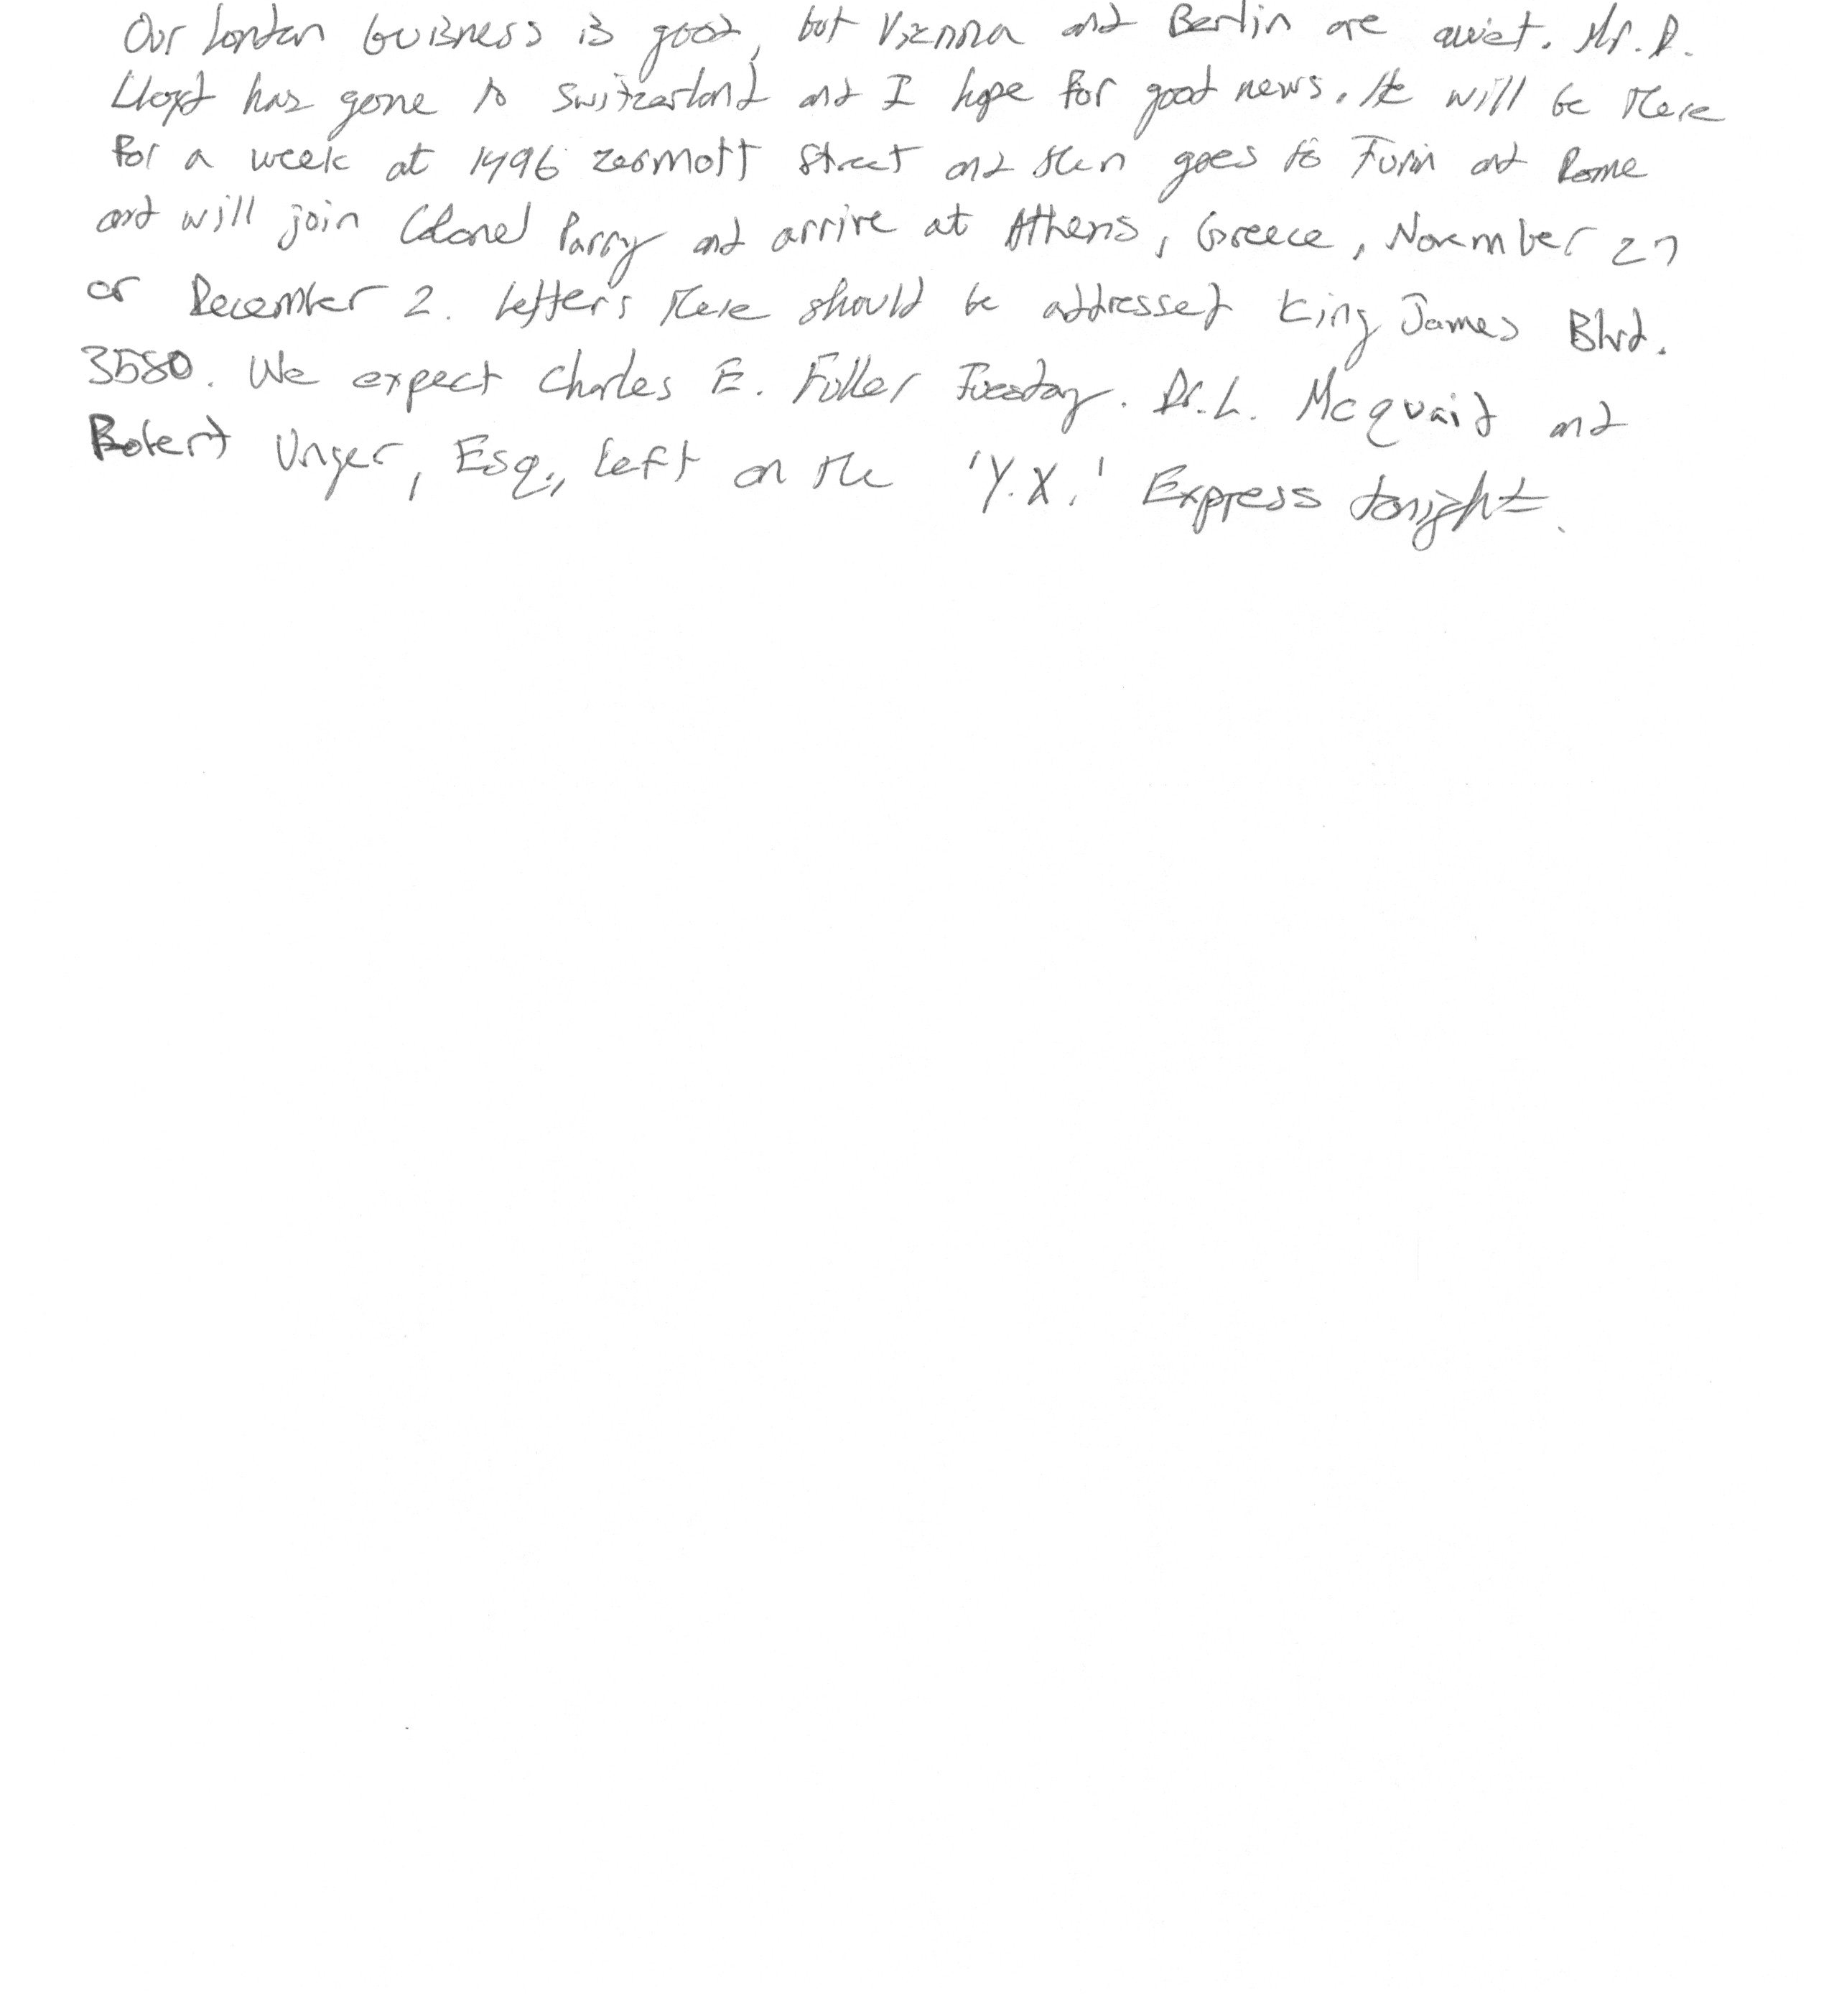 Our London buisness is good, but Vienna and Berlin are quiet. Mr. D.
Lloyd has gone to Switzerland and I hope for good news. He will be there
for a week at 1496 Zermott Street and then goes to Turin and Rome
and will join Colonel Parry and arrive at Athens, Greece, November 27
or December 2. Letters there should be addressed King James Blvd.
3580. We expect Charles E. Fuller Tuesday. Dr. L. McQuaid and
Robert Unger, Esq., left on the 'Y.X.' Express tonight.